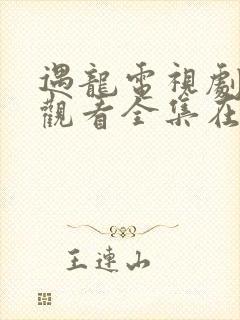 遇龍電視劇
觀看全集在
王連山